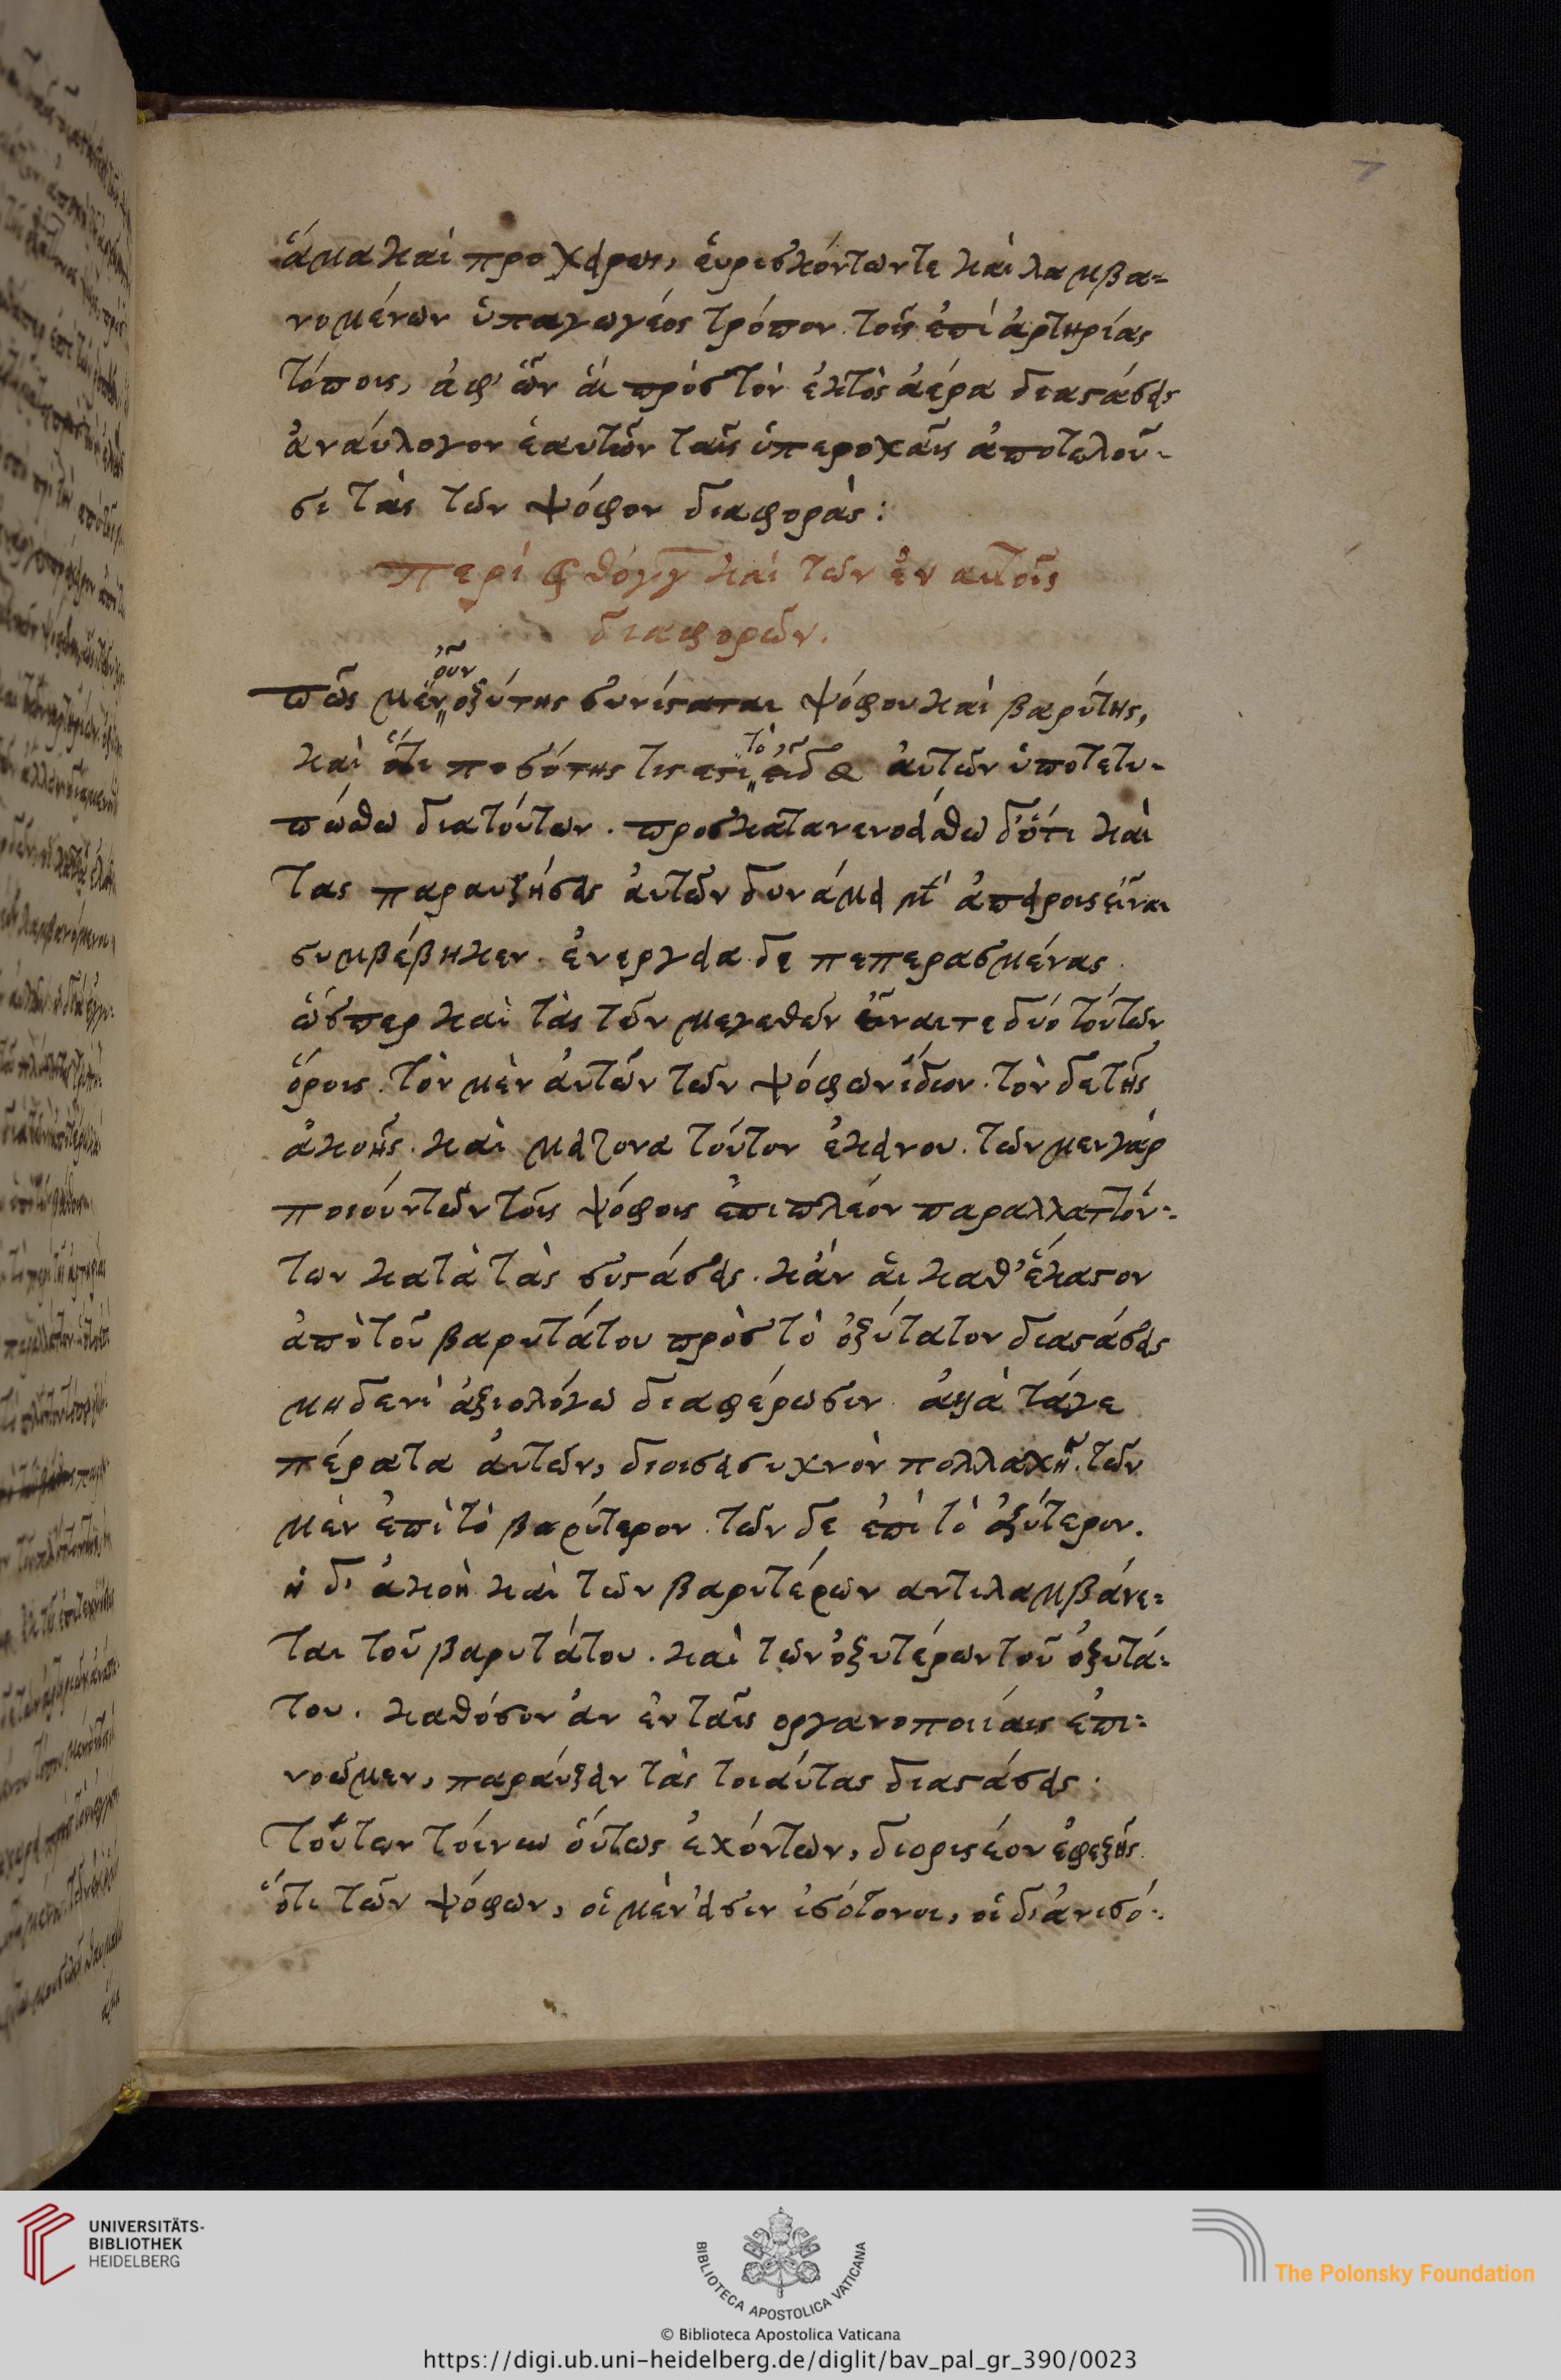 7
ἅμα καὶ προχείρως, εὑρισκόντων τε καὶ λαμβα-
νομένων ὑπαγωγέος τρόπον τοῖς ἐπὶ ἀρτηρίας
τόποις, ἀφ' ὧν αἱ πρὸς τὸν ἐκτὸς ἀέρα διαστάσεις
ἀνάυλογον ἑαυτῶν ταῖς ὑπεροχαῖς ἀποτελοῦ-
σι τὰς τῶν ψόφον διαφοράς:
περὶ φθόγγ καὶ τῶν ἐν αὐτοῖς
διαφορῶν.
πῶς μὲν οὖν ὀξύτης συνίσταται ψόφου καὶ βαρύτης,
καὶ ὅτι ποσότης τις ἐστὶ τὸ εἶδος αὐτῶν ὑποτετυ-
πώσθω διατούτων. προσκατανενοείσθω δ' ὅτι καὶ
τας παραυξήσεις αὐτῶν δυνάμει μὲν ἀπείροις εἶναι
συμβέβηκεν. ἐνεργεία δε πεπερασμένας.
ὥσπερ καὶ τὰς τῶν μεγεθῶν εἶναι τε δύο τούτων
ὅροις. τὸν μὲν αὐτῶν τῶν ψόφων ἴδιον. τὸν δε τῆς
ἀκοῆς. καὶ μείζονα τοῦτον ἐκείνου. τῶν μεν γάρ
ποιούντων τοῖς ψόφοις ἐπιπλέον παραλλαττόν-
των κατὰ τὰς συστάσεις. κἀν αἱ καθ' ἕκαστον
ἀπὸ τοῦ βαρυτάτου πρὸς τὸ ὀξύτατον διαστάσεις
μηδενὶ ἀξιολόγω διαφέρωσιν. ἀλλὰ τάγε
πέρατα αὐτῶν, διοισεισυχνὸν πολλαχῆ. τῶν
μὲν ἐπὶ τὸ βαρύτερον. τῶν δε ἐπὶ τὸ ὀξύτερον.
ἡ δ' ἀκοὴ καὶ τῶν βαρυτέρων αντιλαμβάνε-
ται τοῦ βαρυτάτου. καὶ τῶν ὀξυτέρων τοῦ ὀξυτά-
του. καθόσον ἀν ἐν ταῖς οργανοποιίαις ἐπι-
νοῶμεν, παραύξειν τὰς τοιαύτας διαστάσεις.
Τούτων τοίνυν οὕτως ἐχόντων, διοριστέον ἐφεξῆς.
ὅτι τῶν ψόφων, οἱ μὲν εἰσιν ἰσότονοι, οἱ δ' ἀνισό-
UNIVERSITÄTS-
BIBLIOTHEK
HEIDELBERG
BIBLIOTECA APOSTOLICA VATICANA
The Polonsky Foundation
© Biblioteca Apostolica Vaticana
https://digi.ub.uni-heidelberg.de/diglit/bav_pal_gr_390/0023